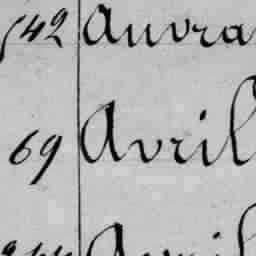 542 Auvra
69 Avril